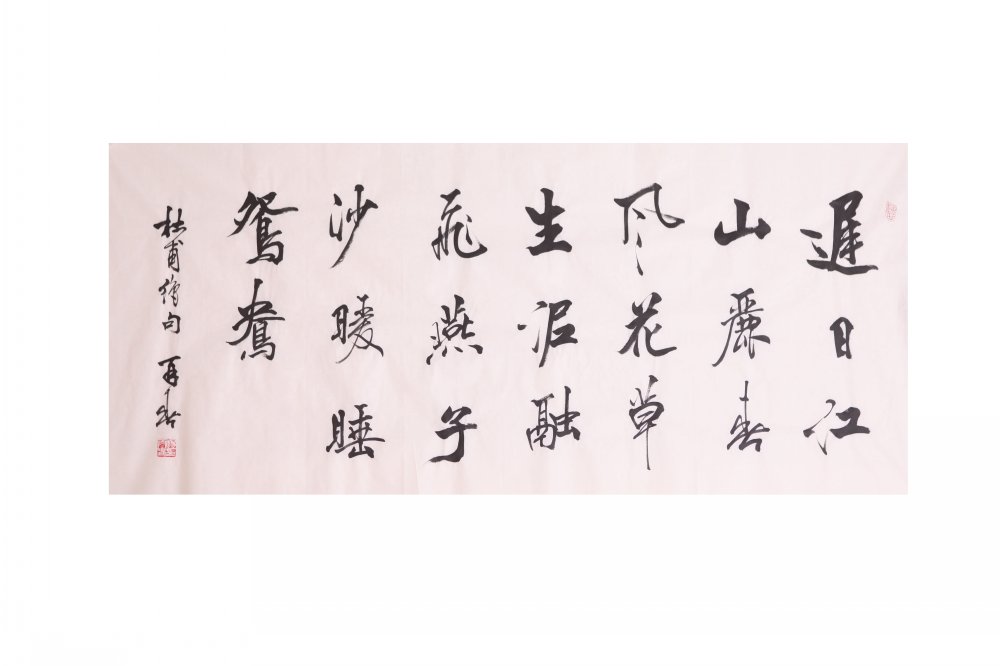 遲日江
山麗春
風花草
生泥融
飛燕子
沙暖睡
鴛鴦
杜甫絕句 再春